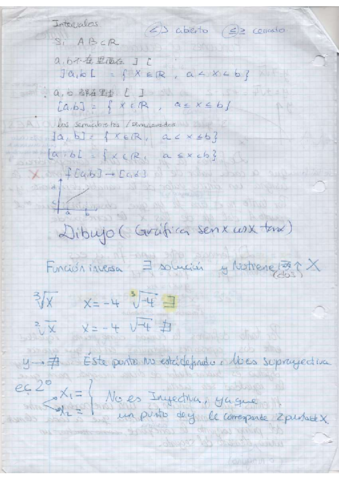 Intervalos
<> abierto ≤≥ cerrado
Si A B ⊂ R
a, b ] [
]a, b[ = { x ∈ R, a < x < b }
a, b [ ]
[a, b] = { x ∈ R, a ≤ x ≤ b }
Los semiabiertos /
]a, b] = { x ∈ R, a < x ≤ b }
[a, b[ = { x ∈ R, a ≤ x < b }
x f[a,b] →
a b
Dibujo ( Gráfica senx cosx tanx )
Función inversa ∃ solución y No tiene X
(dos)
∛x x = -4 ∛-4 ∃
√x x = -4 √-4 ∄
y → ∄ Éste punto No está definido, No es Suprayectiva
ec 2º x₁ =
x₂ =
No es Inyectiva, ya que
un punto de y le corresponde 2 puntos de X